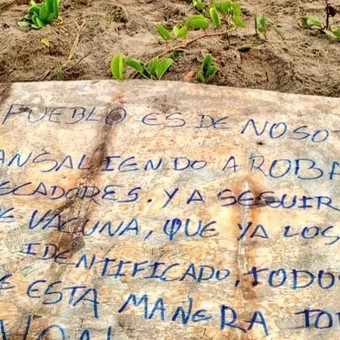 PUEBLO ES DE NOSOT
ANSALIENDO A ROBA
ECADORES. YA SEGUIR
E VACUNA, QUE YA LOS
IDENTIFICADO, TODOS
E ESTA MANERA TO